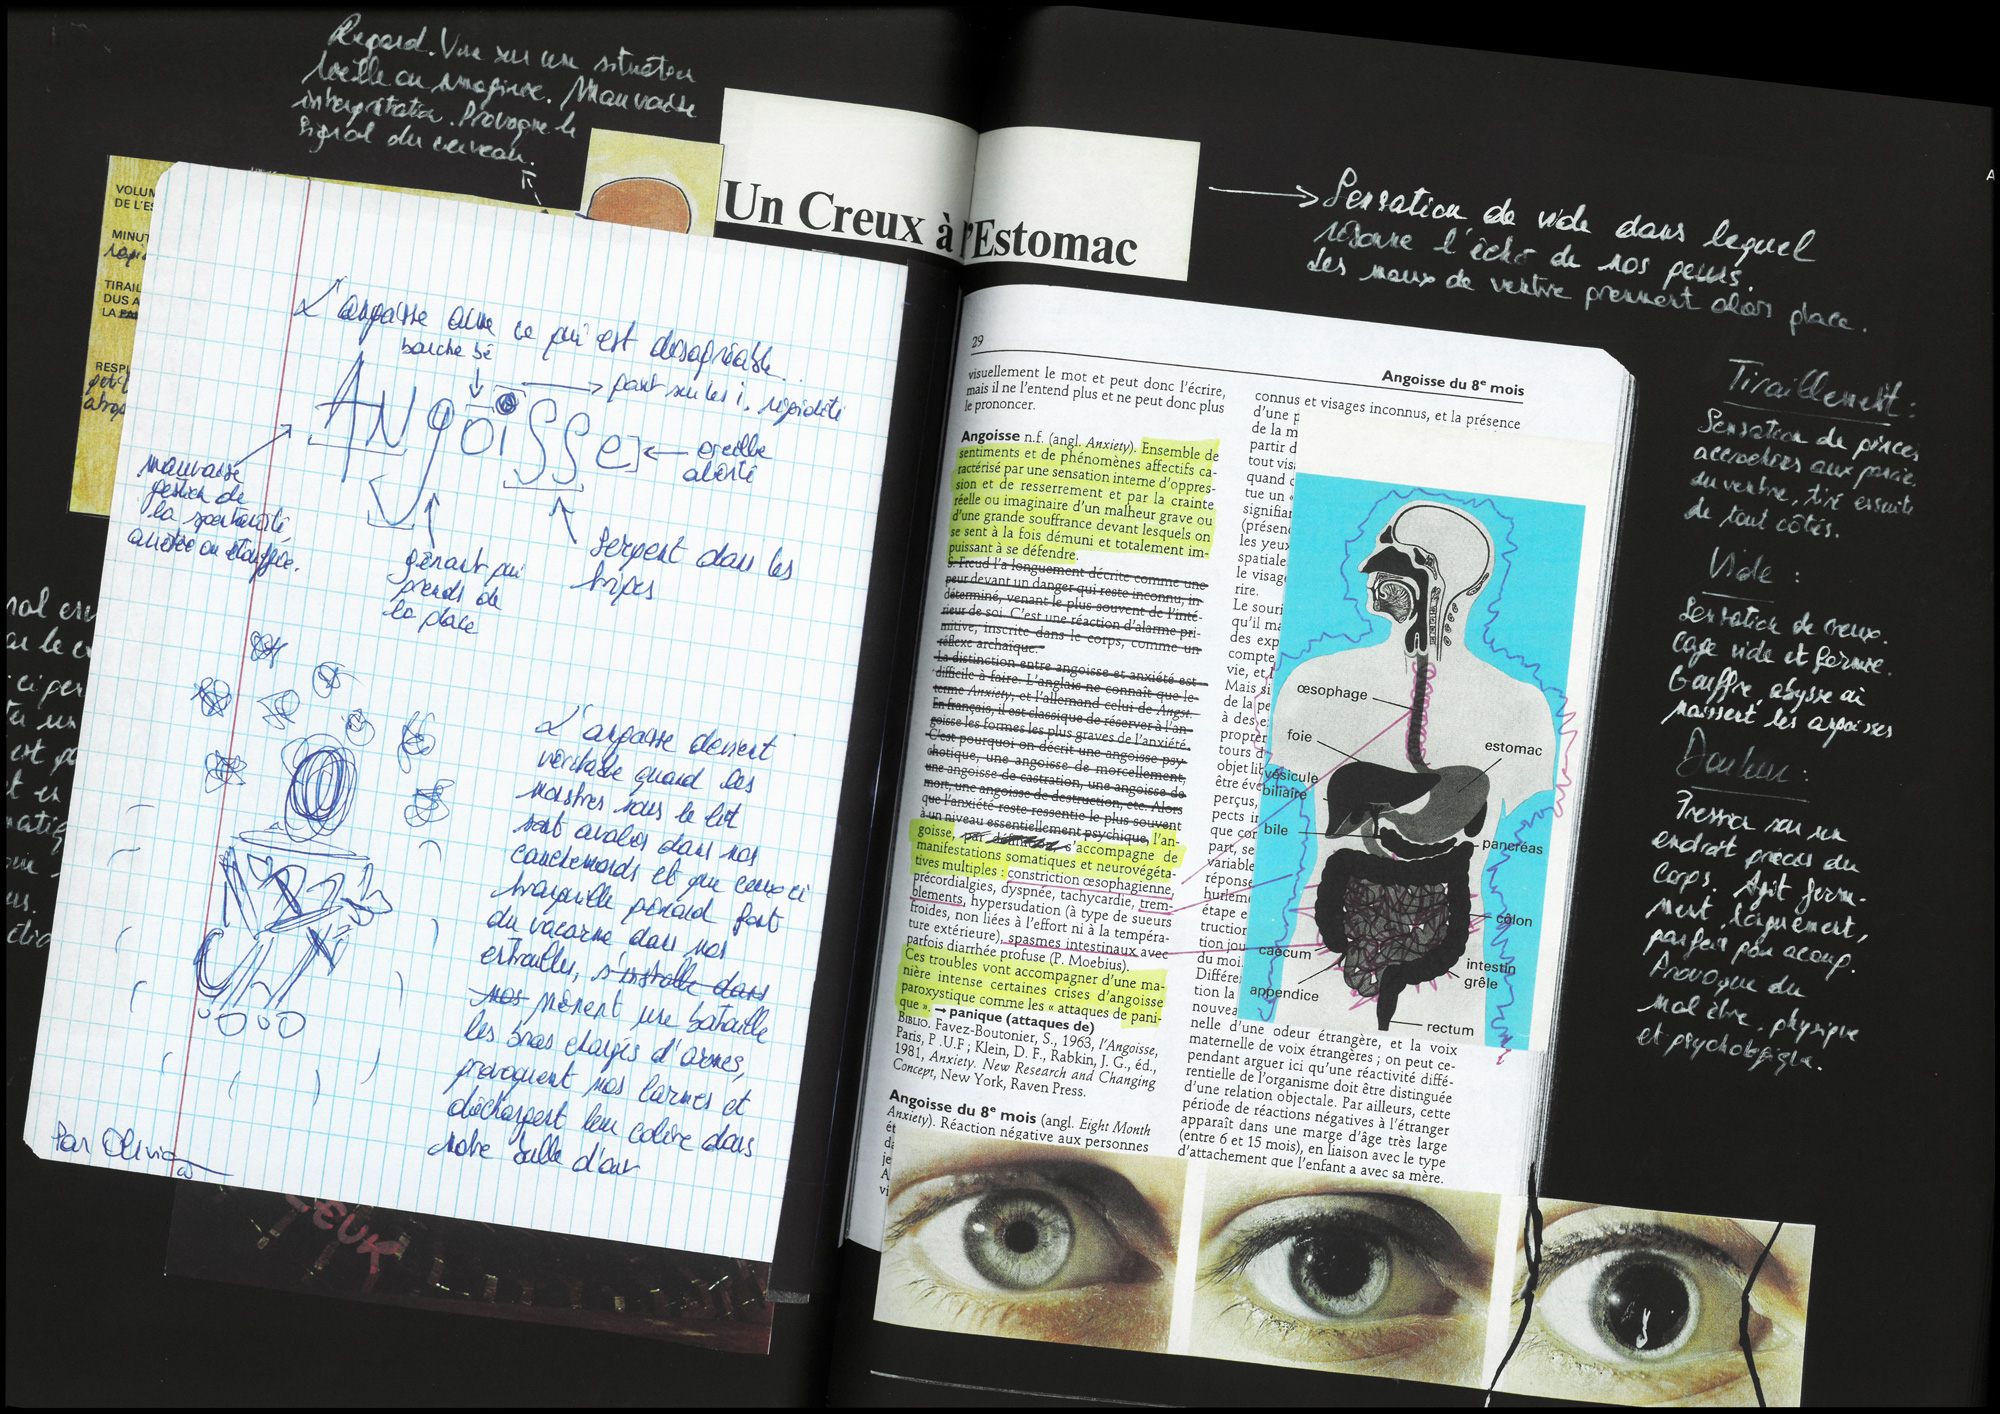 Regard. Vue sur une situation
réelle ou imaginée. Mauvaise
interprétation. Provoque le
signal du cerveau.
Un Creux à l'Estomac
Sensation de vide dans lequel
résonne l'écho de nos peurs.
Les maux de ventre prennent alors place.
VOLUM
DE L'ES
MINUT
TIRAIL
DUS A
LA
RESPI
L'angoisse aime ce qui est désagréable...
bouche bé
point sur les i, rigidité
ANgoisse
oreille
alerte
mauvaise
gestion de
la spontanéité,
arrêtée ou étouffée.
gênant qui
prends de
la place
Serpent dans les
tripes
L'angoisse devient
véritable quand les
monstres sous le lit
sont avalés dans nos
cauchemards et que ceux ci
tranquille pénard font
du vacarme dans nos
entrailles, s'installe dans
nos mènent une bataille
les bras chargés d'armes,
provoquent nos larmes et
déchargent leur colère dans
notre bulle d'air
Par Olivia
29
Angoisse du 8e mois
visuellement le mot et peut donc l'écrire,
mais il ne l'entend plus et ne peut donc plus
le prononcer.
Angoisse n.f. (angl. Anxiety). Ensemble de
sentiments et de phénomènes affectifs ca-
ractérisé par une sensation interne d'oppres-
sion et de resserrement et par la crainte
réelle ou imaginaire d'un malheur grave ou
d'une grande souffrance devant lesquels on
se sent à la fois démuni et totalement im-
puissant à se défendre.
S. Freud l'a longuement décrite comme une
peur devant un danger qui reste inconnu, in-
déterminé, venant le plus souvent de l'inté-
rieur de soi. C'est une réaction d'alarme pri-
mitive, inscrite dans le corps, comme un
réflexe archaïque.
La distinction entre angoisse et anxiété est
difficile à faire. L'anglais ne connaît que le
terme Anxiety, et l'allemand celui de Angst.
En français, il est classique de réserver à l'an-
goisse les formes les plus graves de l'anxiété.
C'est pourquoi on décrit une angoisse psy-
chotique, une angoisse de morcellement,
une angoisse de castration, une angoisse de
mort, une angoisse de destruction, etc. Alors
que l'anxiété reste ressentie le plus souvent
à un niveau essentiellement psychique, l'an-
goisse, par s'accompagne de
manifestations somatiques et neurovégéta-
tives multiples : constriction œsophagienne,
précordialgies, dyspnée, tachycardie, trem-
blements, hypersudation (à type de sueurs
froides, non liées à l'effort ni à la tempéra-
ture extérieure), spasmes intestinaux avec
parfois diarrhée profuse (P. Moebius).
Ces troubles vont accompagner d'une ma-
nière intense certaines crises d'angoisse
paroxystique comme les « attaques de pani-
que ». → panique (attaques de)
BIBLIO. Favez-Boutonier, S., 1963, l'Angoisse,
Paris, P.U.F ; Klein, D. F., Rabkin, J. G., éd.,
1981, Anxiety. New Research and Changing
Concept, New York, Raven Press.
Angoisse du 8e mois (angl. Eight Month
Anxiety). Réaction négative aux personnes
connus et visages inconnus, et la présence
d'une p
de la m
partir d
tout vis
quand c
tue un «
signifian
(présenc
les yeux
spatiale
le visag
rire.
Le souri
qu'il ma
des exp
compte
vie, et l
Mais si
de la pe
à des e
proprer
tours d
objet lib
être éve
perçus,
pects ir
que cor
part, se
variable
réponse
hurleme
étape e
truction
tion jou
du moi.
Différer
tion la
nouvea
nelle d'une odeur étrangère, et la voix
maternelle de voix étrangères ; on peut ce-
pendant arguer ici qu'une réactivité diffé-
rentielle de l'organisme doit être distinguée
d'une relation objectale. Par ailleurs, cette
période de réactions négatives à l'étranger
apparaît dans une marge d'âge très large
(entre 6 et 15 mois), en liaison avec le type
d'attachement que l'enfant a avec sa mère.
œsophage
foie
estomac
vésicule
biliaire
bile
pancréas
côlon
caecum
intestin
grêle
appendice
rectum
Tiraillement :
Sensation de pinces
accrochées aux parois
du ventre, tiré ensuite
de tout côtés.
Vide :
Sensation de creux.
Cage vide et fermée.
Gouffre, abysse où
naissent les angoisses
Douleur :
Pression sur un
endroit précis du
corps. Agit ferme-
ment, longuement,
parfois par acoup.
Provoque du
mal être, physique
et psychologique.